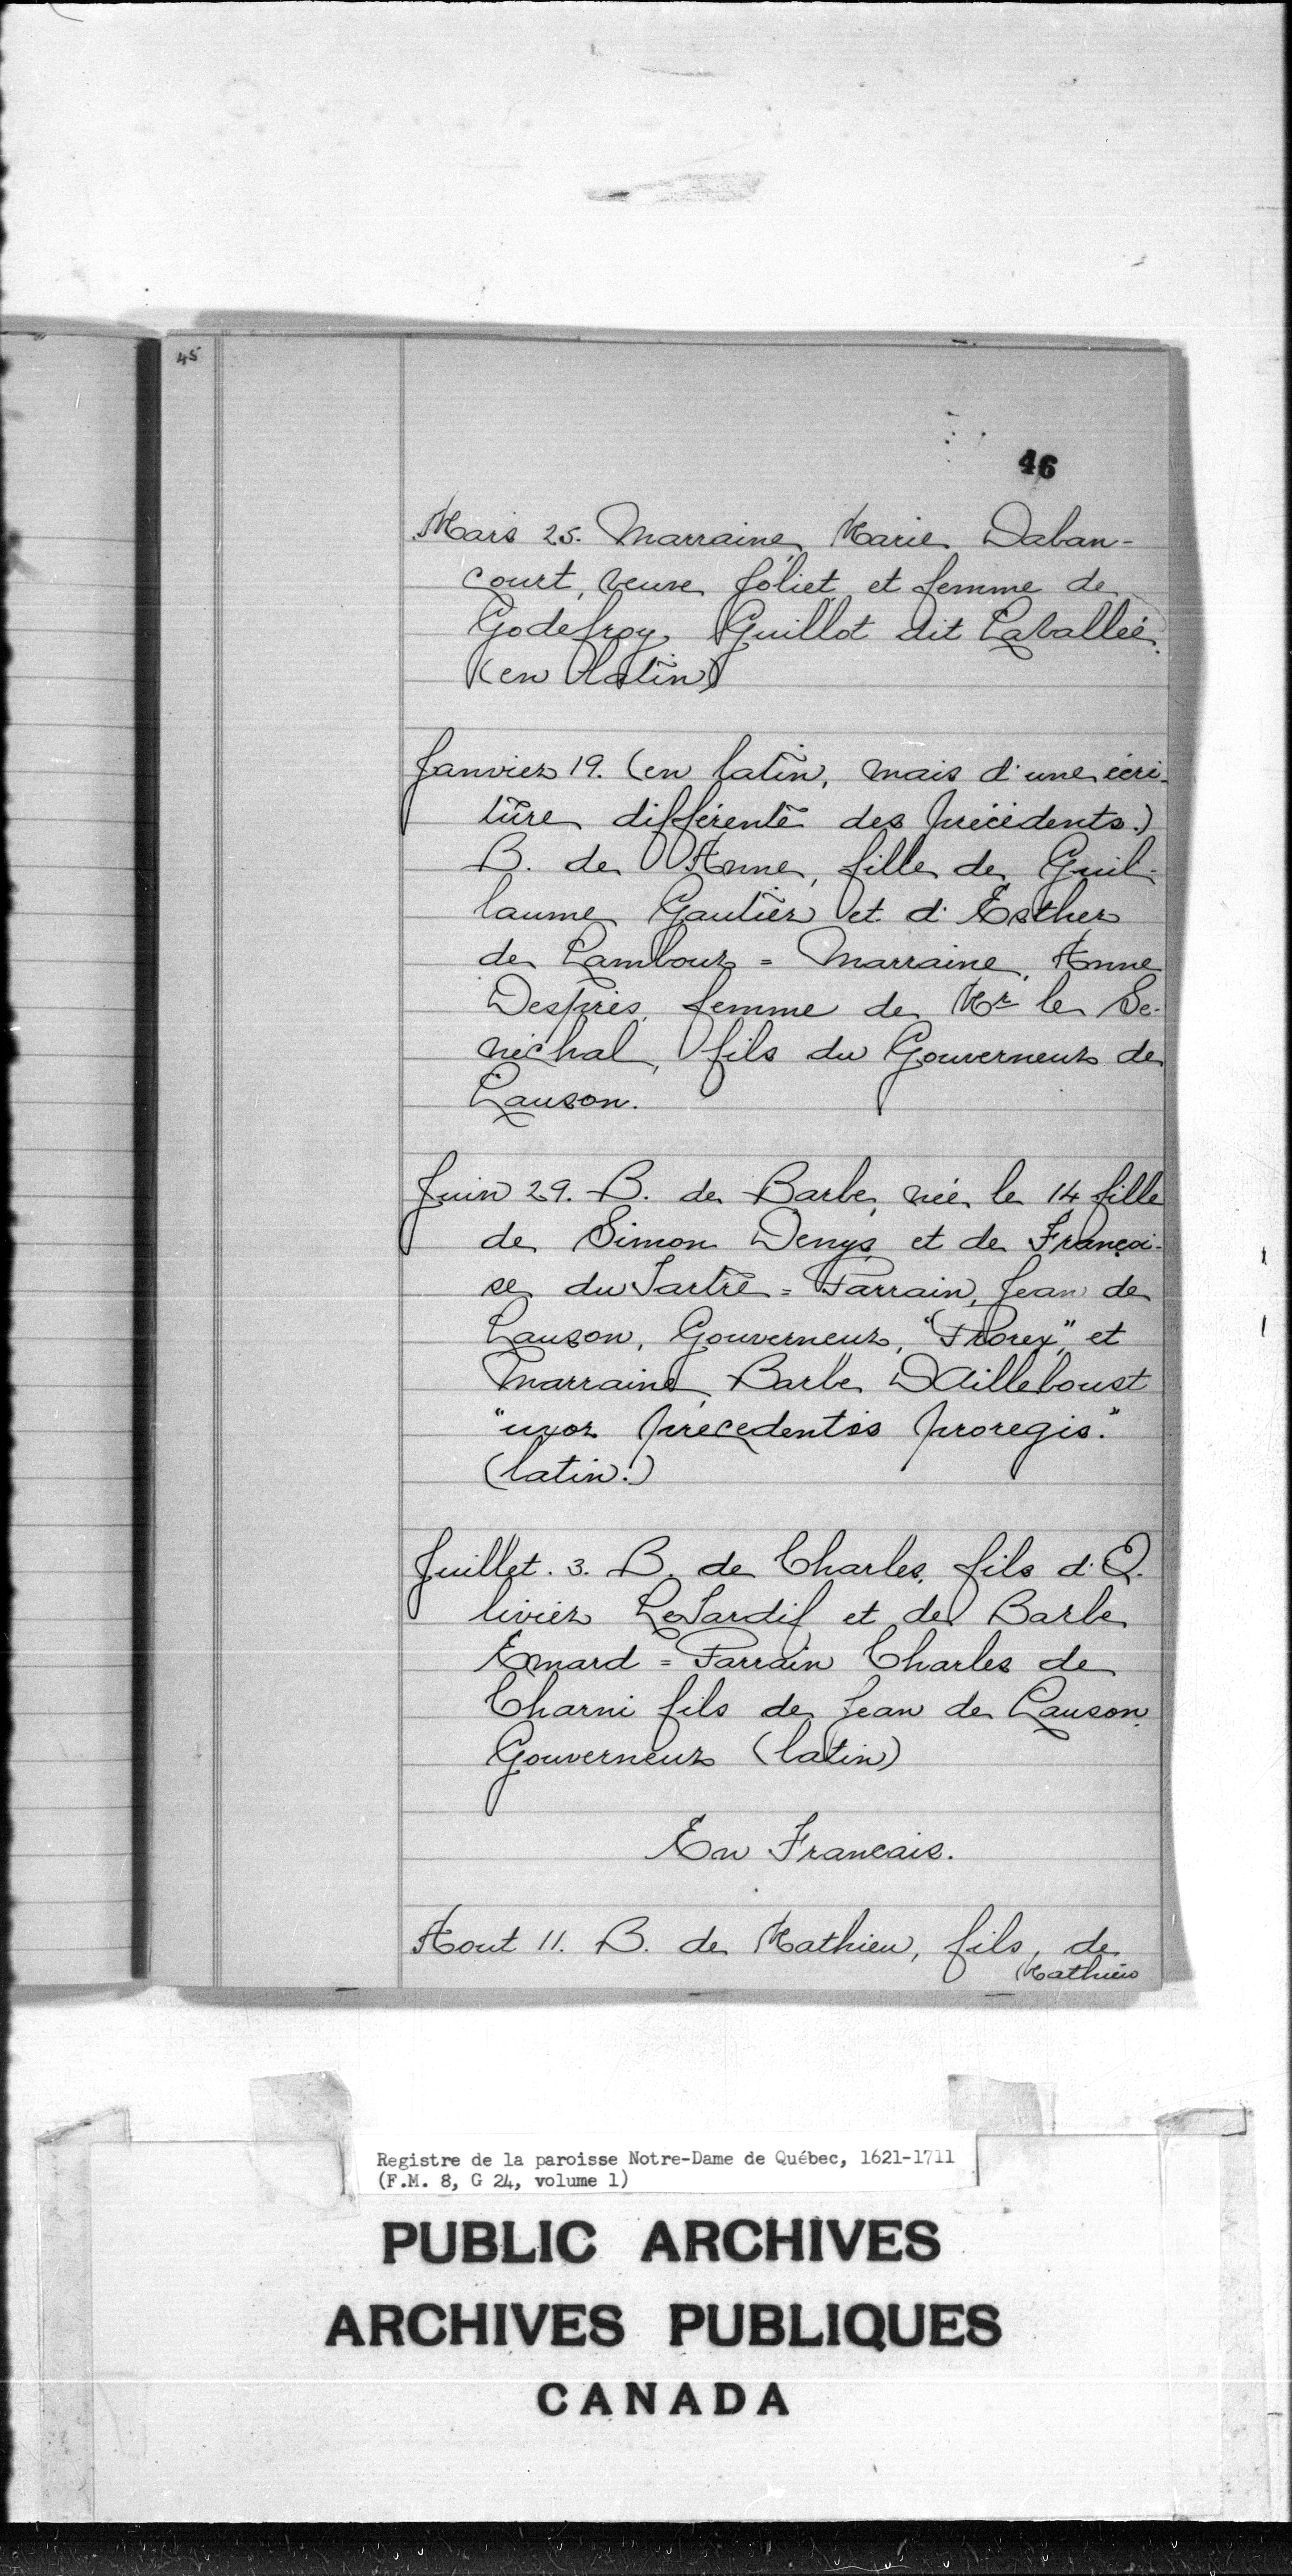 45
46
Mars 25. Marraine, Marie Daban-
court, veuve Joliet, et femme de
Godefroy, Guillot dit Lavallée.
(en latin)
Janvier 19. (en latin, mais d'une écri-
ture différente des précédents.)
B. de Anne, fille de Guil-
laume Gautier et d'Esther
de Lambour = Marraine, Anne
Després, femme de Mr le Sé-
néchal, fils du Gouverneur de
Lauson.
Juin 29. B. de Barbe, née le 14 fille
de Simon Denys et de Françoi-
se du Tartre = Parrain, Jean de
Lauson, Gouverneur, "Prorex", et
Marraine, Barbe DAilleboust
"uxor precedentis proregis."
(latin.)
Juillet. 3. B. de Charles, fils d'O-
livier LeTardif et de Barbe
Emard = Parrain Charles de
Charni fils de Jean de Lauson,
Gouverneur (latin)
En Francais.
Aout 11. B. de Mathieu, fils, de
Mathieu
Registre de la paroisse Notre-Dame de Québec, 1621-1711
(F.M. 8, G 24, volume 1)
PUBLIC ARCHIVES
ARCHIVES PUBLIQUES
CANADA